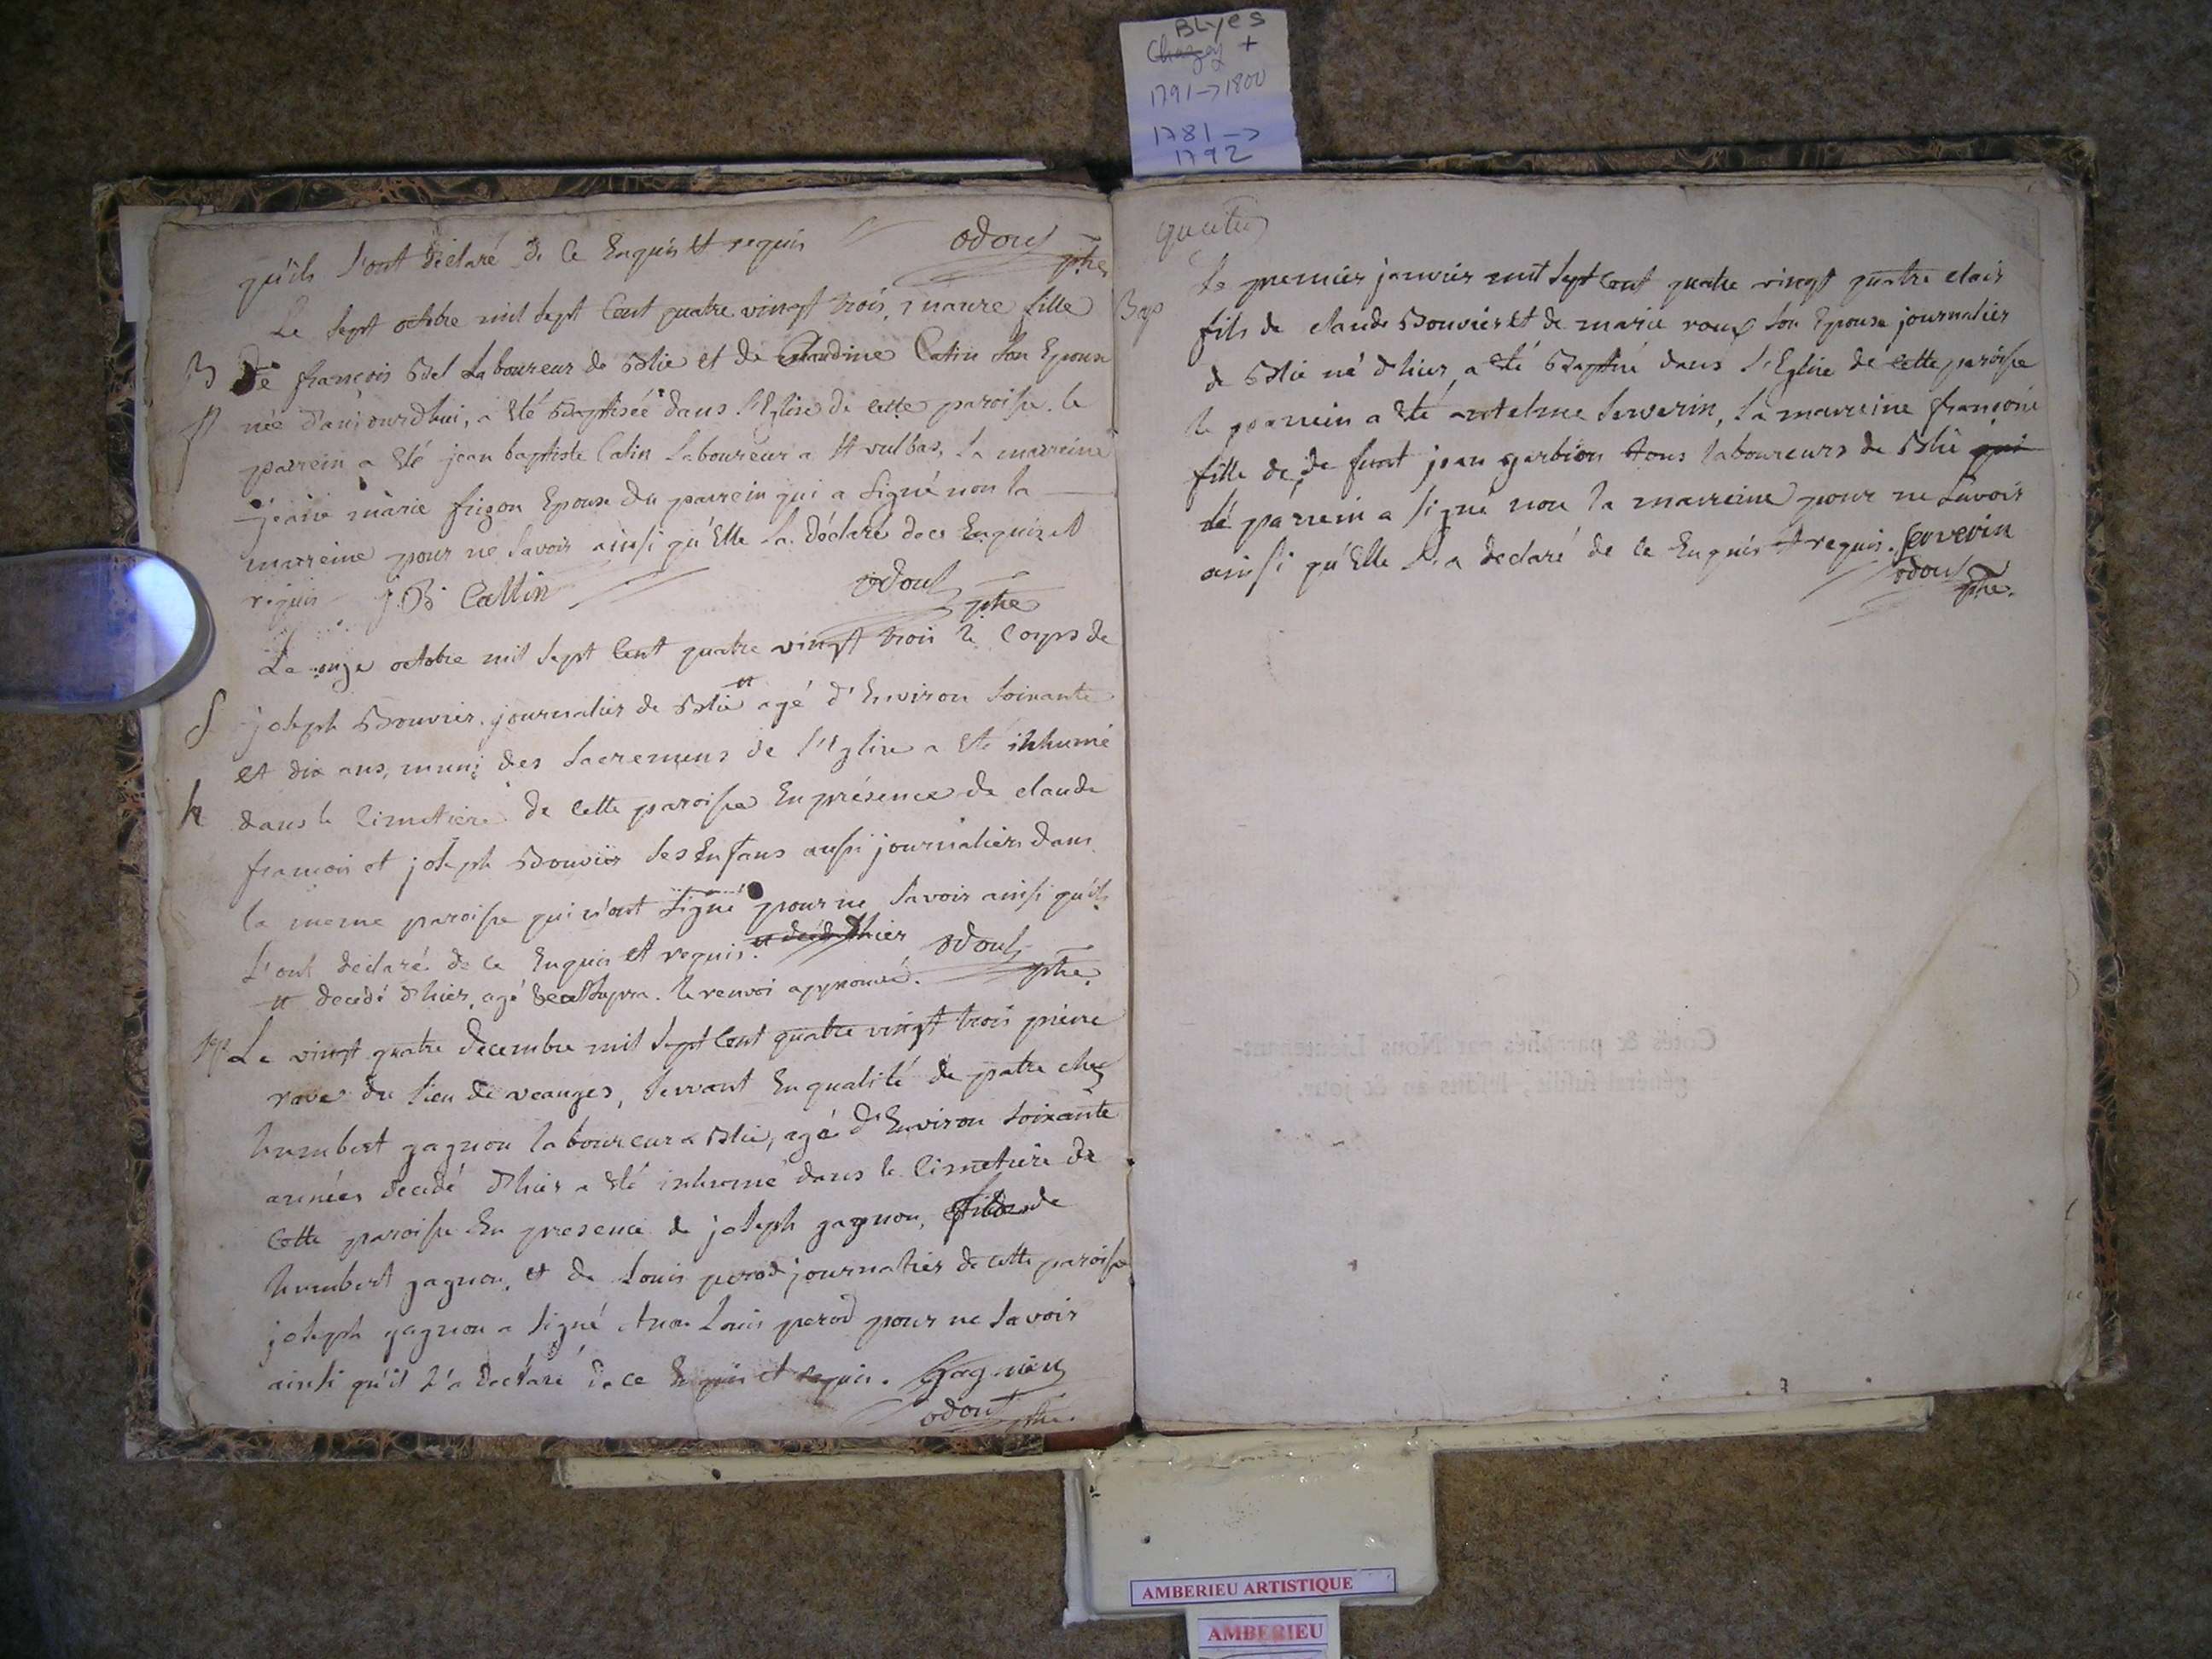 BLyes
Chazey +
1791 -> 1800
1781 ->
1792
qu'ils l'ont déclaré de ce Enquis et requis odoul
ptre
Le sept octobre mil sept Cent quatre vingt trois, fille
B De françois Bel Laboureur de Blie et de Claudine Catin son Epouse
née d'aujourdhui, a été Baptisée dans l'Eglise de cette paroisse. le
parrein a été jean baptiste Catin Laboureur a St vulbas, la marreine
jeane marie frizon Epouse du parrein qui a signé non la
marreine pour ne savoir ainsi qu'Elle l'a déclaré de ce Enquis et
requis J. B. Cattin odoul
ptre
Le onze octobre mil sept Cent quatre vingt trois le Corps de
S joseph Bouvier journalier de Blie agé d'Environ soixante
et dix ans, muni des sacremens de l'Eglise a été inhumé
dans le Cimetiere de cette paroisse En présence de claude
francois et joseph Bouvier ses Enfans aussi journaliers dans
la meme paroisse qui n'ont signé pour ne savoir ainsi qu'ils
l'ont déclaré de ce Enquis et requis. et décédé d'hier odoul
decédé d'hier, agé le renvoi approuvé. ptre
Le vingt quatre decembre mil sept Cent quatre vingt trois pierre
rave du lieu de veanges, servant En qualité de patre chez
humbert gagnon laboureur a Blie, agé d'Environ soixante
années decédé d'hier a été inhumé dans le Cimetiere de
Cette paroisse En presence de joseph gagnon, fils de
humbert gagnon, et de Louis perod journalier de cette paroisse
joseph gagnon a signé et non Louis perod pour ne savoir
ainsi qu'il l'a declaré de ce Enquis et requis. Gagnion
odoul ptre.
quatre
Le premier janvier mil sept Cent quatre vingt quatre clair
Bap fils de claude Bouvier et de marie roux son Epouse journalier
de Blie né d'hier, a été Baptisé dans l'Eglise de cette paroisse
le parrein a été antelme serverin, la marreine françoise
fille de de funt jean garbion tous laboureurs de Blie qui
le parrein a signé non la marreine pour ne savoir
ainsi qu'Elle l'a declaré de ce Enquis et requis. serverin
odoul
ptre.
Cotés & paraphés par Nous Lieutenant-
général susdit, lesdits an & jour.
AMBERIEU ARTISTIQUE
AMBERIEU